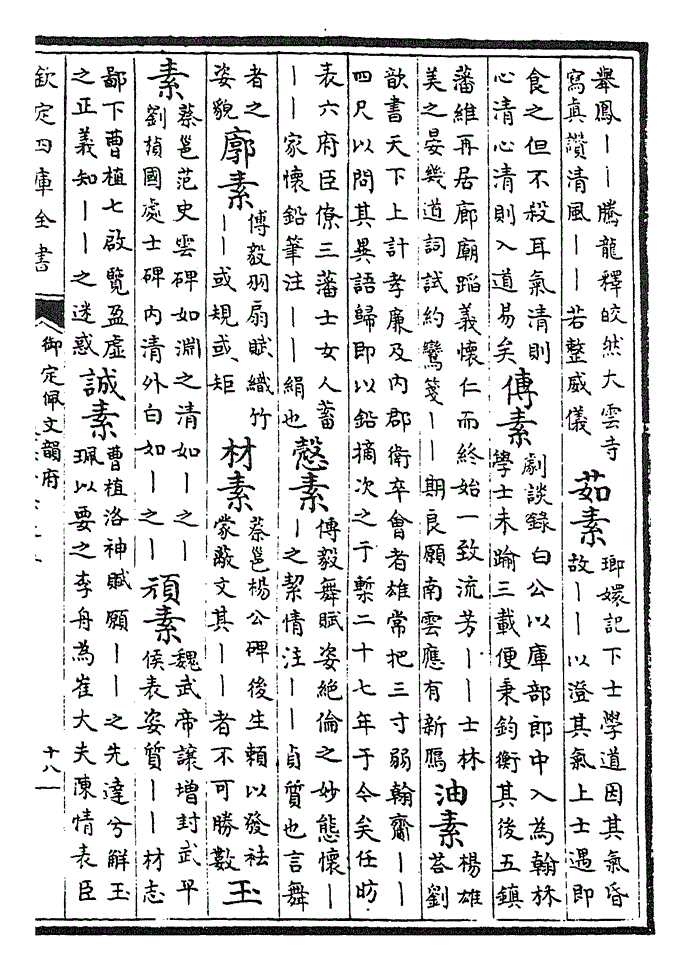 舉鳳——騰龍釋皎然大雲寺
寫真讚清風——若整威儀
茹素
瑯嬛記下士學道因其氣昏
故——以澄其氣上士遇即
食之但不殺耳氣清則
心清心清則入道易矣
傅素
劇談錄白公以庫部郎中入為翰林
學士未踰三載便秉鈞衡其後五鎮
藩維再居廊廟蹈義懷仁而終始一致流芳——士林
美之晏幾道詞試約鸞箋——期良願南雲應有新鴈
油素
楊雄
荅劉
歆書天下上計孝廉及內郡衛卒會者雄常把三寸弱翰齎——
四尺以問其異語歸即以鉛摘次之于槧二十七年于今矣任昉
表六府臣僚三藩士女人蓄
——家懷鉛筆注——絹也
慤素
傅毅舞賦姿絕倫之妙態懷—
—之絜情注——貞質也言舞
者之
姿貌
廓素
傅毅羽扇賦織竹
——或規或矩
材素
蔡邕楊公碑後生賴以發祛
蒙蔽文其——者不可勝數
玉
素
蔡邕范史雲碑如淵之清如—之—
劉楨國處士碑內清外白如—之—
頑素
魏武帝讓增封武平
侯表姿質——材志
鄙下曹植七啟覽盈虛
之正義知——之迷惑
誠素
曹植洛神賦願——之先達兮解玉
珮以要之李舟為崔大夫陳情表臣
欽定四庫全書
御定佩文韻府
十八